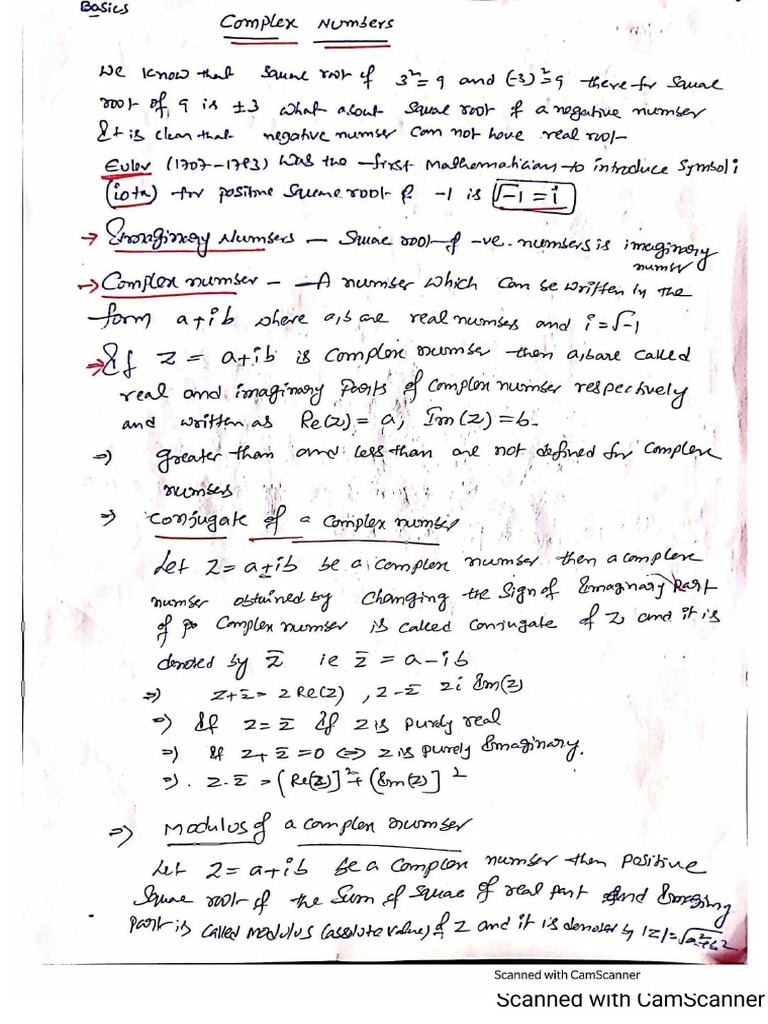 Basics
Complex Numbers
We know that square root of 3²=9 and (-3)²=9 there for square
root of 9 is ±3 what about square root of a negative number
It is clear that negative number can not have real root
Euler (1707-1783) was the first Mathematician to introduce symbol i
(iota) for positive square root of -1 is √-1 = i
→ Imaginary Numbers - Square root of -ve numbers is imaginary
number
→ Complex number - - A number which can be written in the
form a+ib where a,b are real numbers and i=√-1
→ If z = a+ib is complex number then a,b are called
real and imaginary parts of complex number respectively
and written as Re(z) = a, Im(z) = b
⇒ greater than and less than are not defined for complex
numbers
⇒ conjugate of a complex number
Let z = a±ib be a complex number then a complex
number obtained by changing the sign of Imaginary Part
of complex number is called conjugate of z and it is
denoted by z̄ ie z̄ = a-ib
⇒ z+z̄ = 2Re(z) , z-z̄ 2i Im(z)
⇒ If z = z̄ if z is purely real
⇒ If z+z̄ = 0 ⇔ z is purely Imaginary.
⇒. z.z̄ = [Re(z)]²+[Im(z)]²
⇒ Modulus of a complex number
Let z = a+ib be a complex number then positive
square root of the sum of square of real part and Imaginary
part is called modulus (absolute value) of z and it is denoted by |z|=√a²+b²
Scanned with CamScanner
Scanned with CamScanner